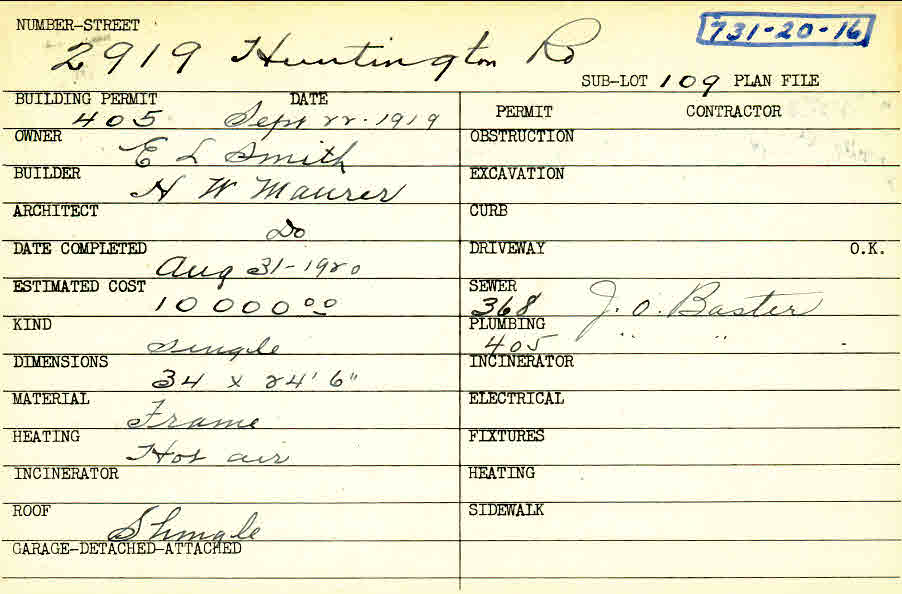 NUMBER-STREET
2919 Huntington Rd
731-20-16
SUB-LOT 109 PLAN FILE
BUILDING PERMIT DATE
405 Sept 22-1919
OWNER
E L Smith
BUILDER
H W Maurer
ARCHITECT
Do
DATE COMPLETED
Aug 31-1920
ESTIMATED COST
10 000 00
KIND
Single
DIMENSIONS
34 x 24' 6"
MATERIAL
Frame
HEATING
Hot air
INCINERATOR
ROOF
Shingle
GARAGE-DETACHED-ATTACHED
PERMIT CONTRACTOR
OBSTRUCTION
EXCAVATION
CURB
DRIVEWAY O.K.
SEWER
368 J. O. Baster
PLUMBING
405 " "
INCINERATOR
ELECTRICAL
FIXTURES
HEATING
SIDEWALK